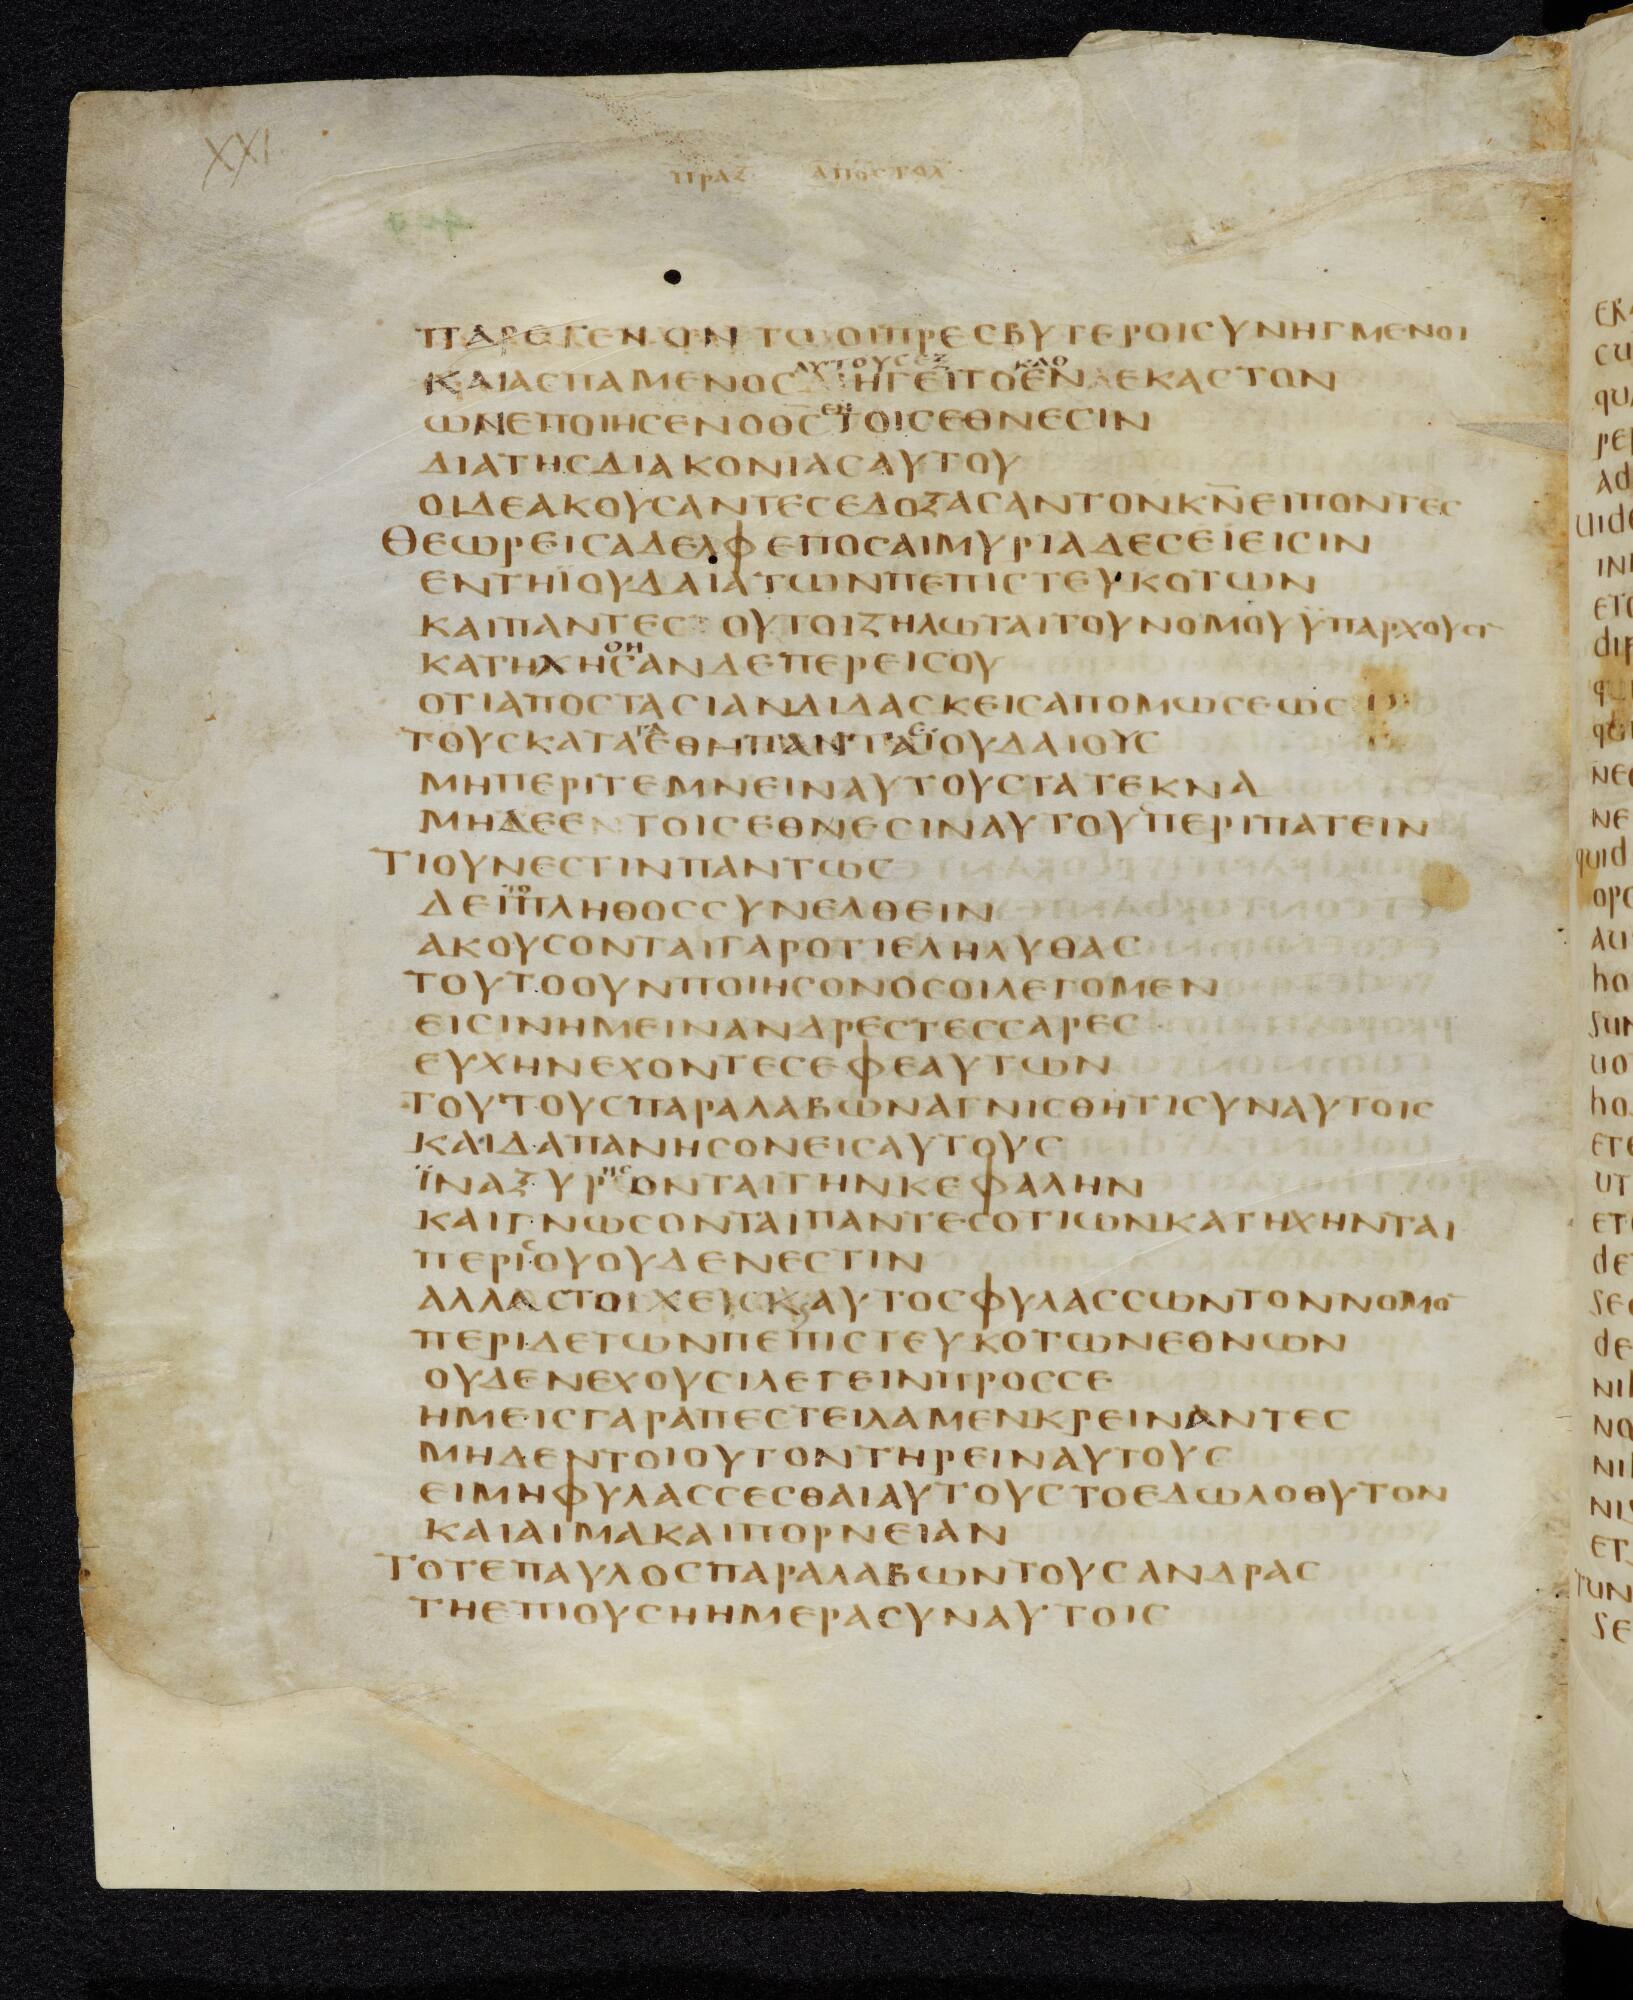 XXI
ΠΡΑΞ ΑΠΟΣΤΟΛ
ΠΑΡΕΓΕΝΟΝΤΩΟΙΠΡΕΣΒΥΤΕΡΟΙΣΥΝΗΓΜΕΝΟΙ
ΑΥΤΟΥΣΕΞ ΚΑΘ
ΚΑΙΑΣΠΑΜΕΝΟΣΔΙΗΓΕΙΤΟΕΝΑΕΚΑΣΤΟΝ
ΕΝ
ΩΝΕΠΟΙΗΣΕΝΟΘΣΤΟΙΣΕΘΝΕΣΙΝ
ΔΙΑΤΗΣΔΙΑΚΟΝΙΑΣΑΥΤΟΥ
ΟΙΔΕΑΚΟΥΣΑΝΤΕΣΕΔΟΞΑΣΑΝΤΟΝΚΝΕΙΠΟΝΤΕΣ
ΘΕΩΡΕΙΣΑΔΕΛΦΕΠΟΣΑΙΜΥΡΙΑΔΕΣΕΙΕΙΣΙΝ
ΕΝΤΗΪΟΥΔΑΙΑΤΩΝΠΕΠΙΣΤΕΥΚΟΤΩΝ
ΚΑΙΠΑΝΤΕΣΟΥΤΟΙΖΗΛΩΤΑΙΤΟΥΝΟΜΟΥΫΠΑΡΧΟΥΣΙ
ΘΗ
ΚΑΤΗΧΗΣΑΝΔΕΠΕΡΕΙΣΟΥ
ΟΤΙΑΠΟΣΤΑΣΙΑΝΔΙΔΑΣΚΕΙΣΑΠΟΜΩΣΕΩΣ
ΤΟΥΣΚΑΤΑΕΘΝΗΠΑΝΤΑΣΪΟΥΔΑΙΟΥΣ
ΜΗΠΕΡΙΤΕΜΝΕΙΝΑΥΤΟΥΣΤΑΤΕΚΝΑ
ΜΗΔΕΕΝΤΟΙΣΕΘΝΕΣΙΝΑΥΤΟΥΠΕΡΙΠΑΤΕΙΝ
ΤΙΟΥΝΕΣΤΙΝΠΑΝΤΩΣ
ΤΟ
ΔΕΙΠΛΗΘΟΣΣΥΝΕΛΘΕΙΝ
ΑΚΟΥΣΟΝΤΑΙΓΑΡΟΤΙΕΛΗΛΥΘΑΣ
ΤΟΥΤΟΟΥΝΠΟΙΗΣΟΝΟΣΟΙΛΕΓΟΜΕΝ
ΕΙΣΙΝΗΜΕΙΝΑΝΔΡΕΣΤΕΣΣΑΡΕΣ
ΕΥΧΗΝΕΧΟΝΤΕΣΕΦΕΑΥΤΩΝ
ΤΟΥΤΟΥΣΠΑΡΑΛΑΒΩΝΑΓΝΙΣΘΗΤΙΣΥΝΑΥΤΟΙΣ
ΚΑΙΔΑΠΑΝΗΣΟΝΕΙΣΑΥΤΟΥΣ
ΗΣ
ΪΝΑΞΥΡΟΝΤΑΙΤΗΝΚΕΦΑΛΗΝ
ΚΑΙΓΝΩΣΟΝΤΑΙΠΑΝΤΕΣΟΤΙΩΝΚΑΤΗΧΗΝΤΑΙ
Σ
ΠΕΡΙΟΥΟΥΔΕΝΕΣΤΙΝ
ΑΛΛΑΣΤΟΙΧΕΙΣΚΑΥΤΟΣΦΥΛΑΣΣΩΝΤΟΝΝΟΜΟ
ΠΕΡΙΔΕΤΩΝΠΕΠΙΣΤΕΥΚΟΤΩΝΕΘΝΩΝ
ΟΥΔΕΝΕΧΟΥΣΙΛΕΓΕΙΝΠΡΟΣΣΕ
ΗΜΕΙΣΓΑΡΑΠΕΣΤΕΙΛΑΜΕΝΚΡΕΙΝΑΝΤΕΣ
ΜΗΔΕΝΤΟΙΟΥΤΟΝΤΗΡΕΙΝΑΥΤΟΥΣ
ΕΙΜΗΦΥΛΑΣΣΕΣΘΑΙΑΥΤΟΥΣΤΟΕΔΩΛΟΘΥΤΟΝ
ΚΑΙΑΙΜΑΚΑΙΠΟΡΝΕΙΑΝ
ΤΟΤΕΠΑΥΛΟΣΠΑΡΑΛΑΒΩΝΤΟΥΣΑΝΔΡΑΣ
ΤΗΕΠΙΟΥΣΗΗΜΕΡΑΣΥΝΑΥΤΟΙΣ